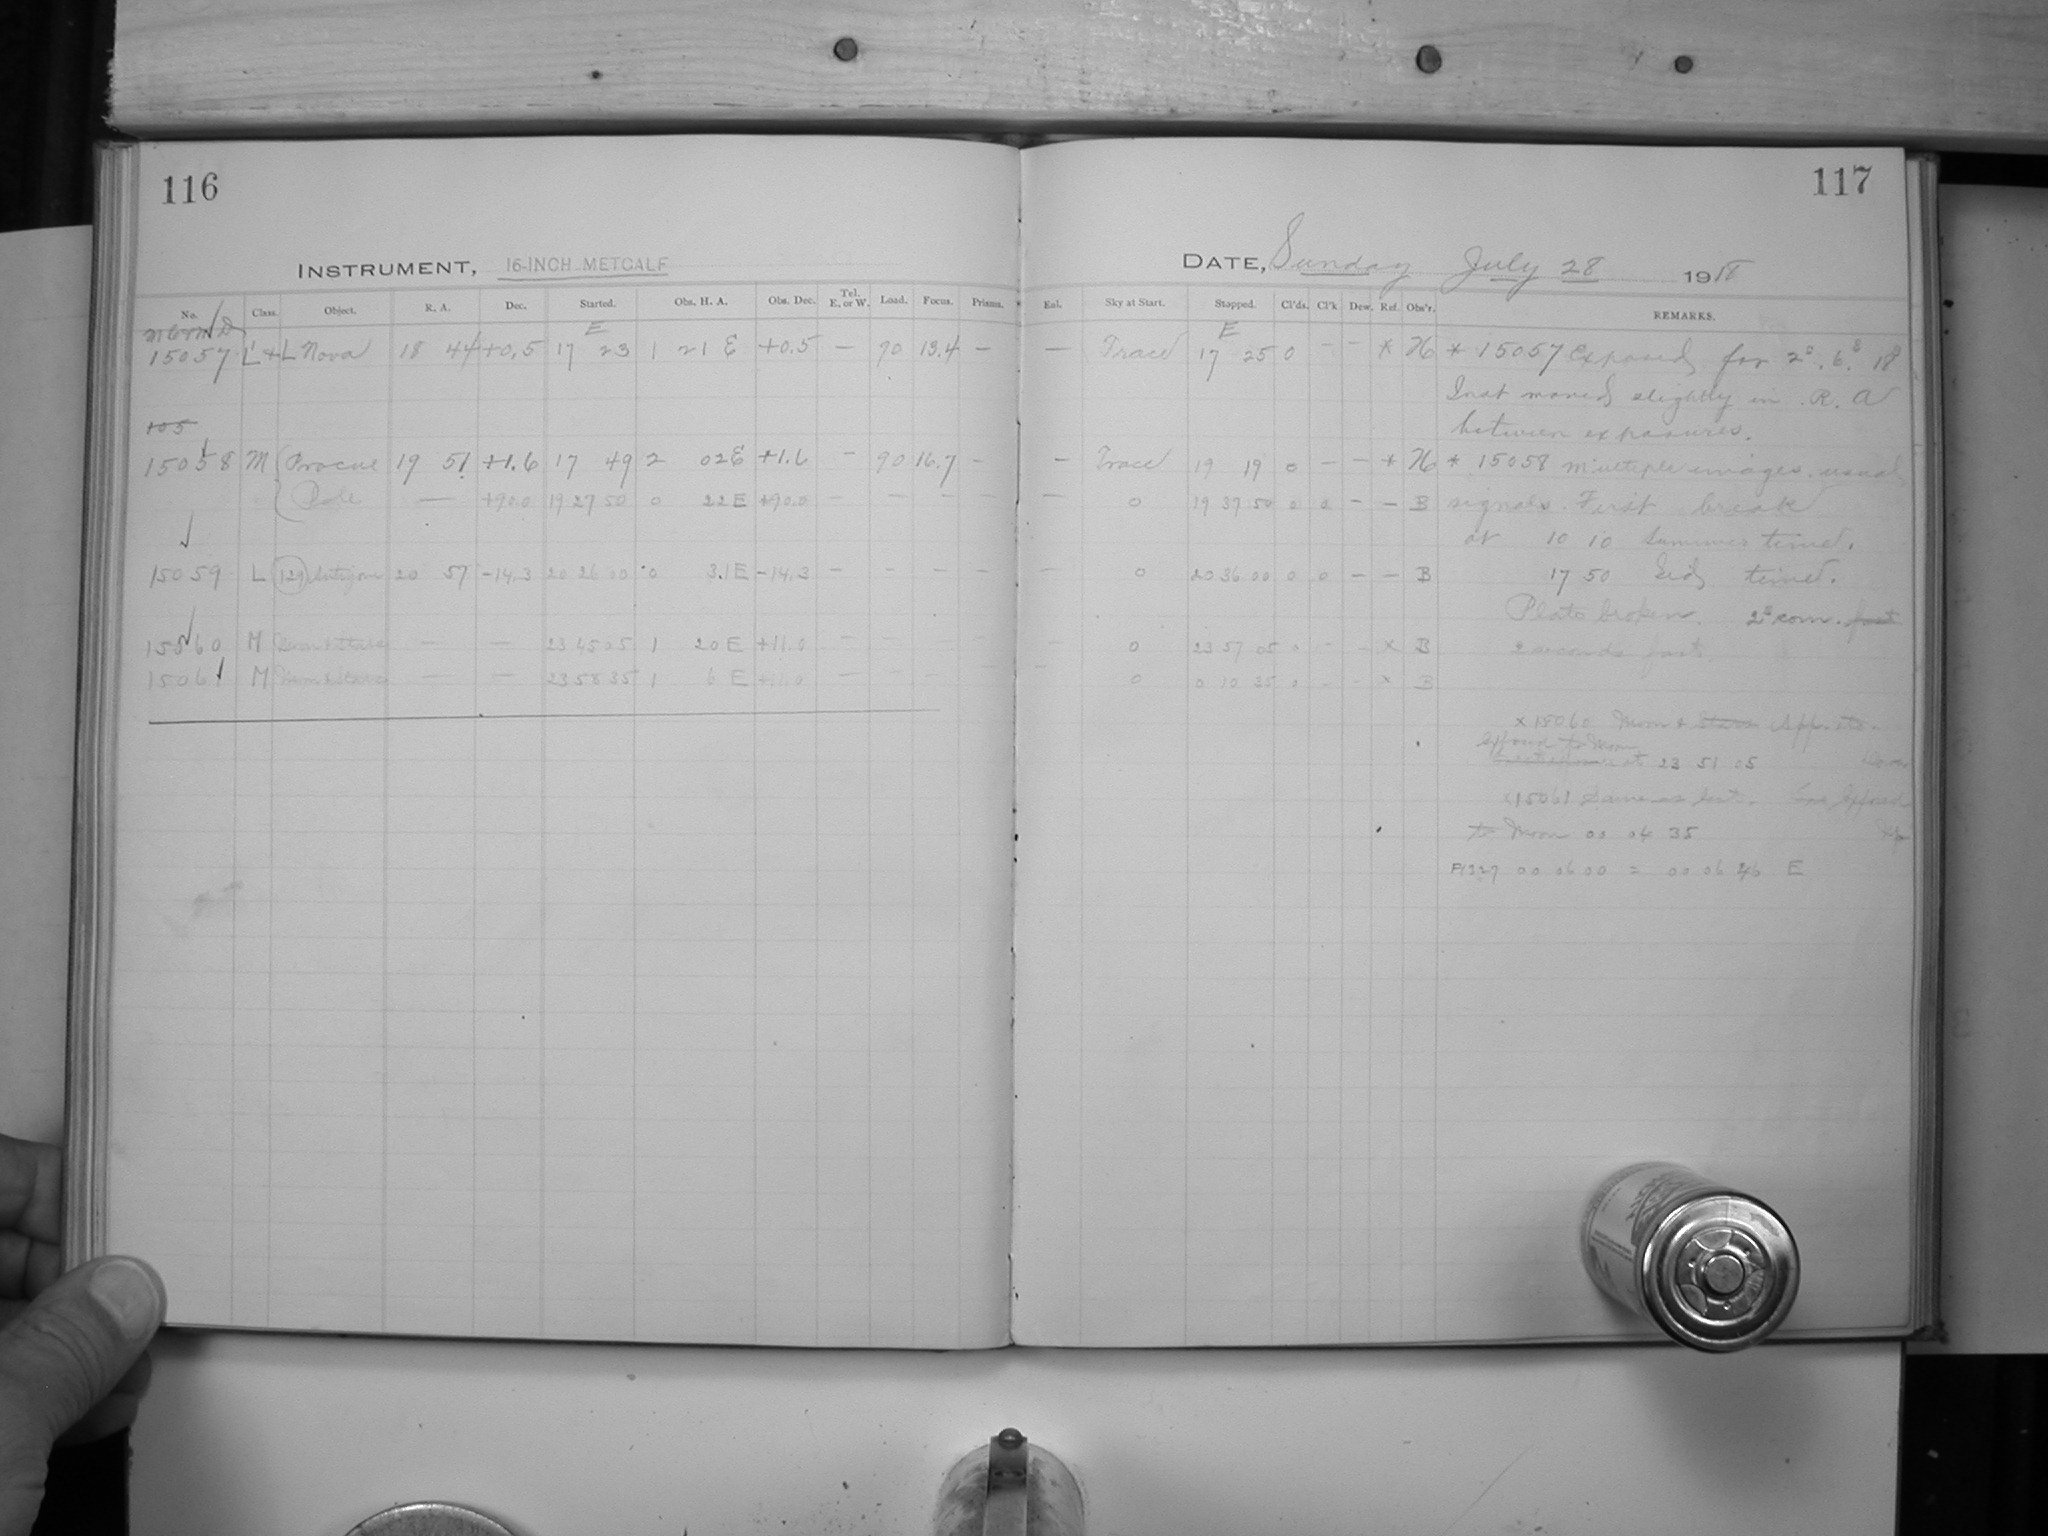 116
INSTRUMENT, 16-INCH METCALF
No. Class. Object. R. A. Dec. Started. Obs. H. A. Obs. Dec. Tel. E. or W. Load. Focus. Prisms.
E
15057 L+L Nova 18 44 +0.5 17 23 1 21 E +0.5 — 90 13.4 —
105
15058 M 19 51 +1.6 17 49 2 02 E +1.6 — 90 16.7 —
Pole — +90.0 19 27 50 0 22 E +90.0 — — — —
15059 L (129) Antigone 20 57 -14.3 20 26 00 0 31 E -14.3 — — — —
15060 M — — 23 45 05 1 20 E +11.0 —
15061 M — — 23 58 35 1 6 E +11.0 — — —
117
DATE, Sunday July 28 1918
Enl. Sky at Start. Stopped. Cl'ds. Cl'k Dew. Ref. Obs'r. REMARKS.
E
— Trace 17 25 0 — — * H * 15057 Exposed for 2s. 6s. 18s
Inst moved slightly in R. A
between exposures.
— Trace 19 19 0 — — * H * 15058 multiple images. usual
— 0 19 37 50 0 0 — — B signals. First break
at 10 10 Summer time.
0 20 36 00 0 0 — — B 17 50 Sid time.
Plate broken. 2s com. fast
0 23 57 05 0 - - x B 2 seconds fast
0 0 10 35 0 - - x B
x 15060 Moon + Stars
to Moon
at 23 51 05
x 15061 Same as last. Exposed
to Moon 00 04 35
00 06 00 = 00 06 46 E